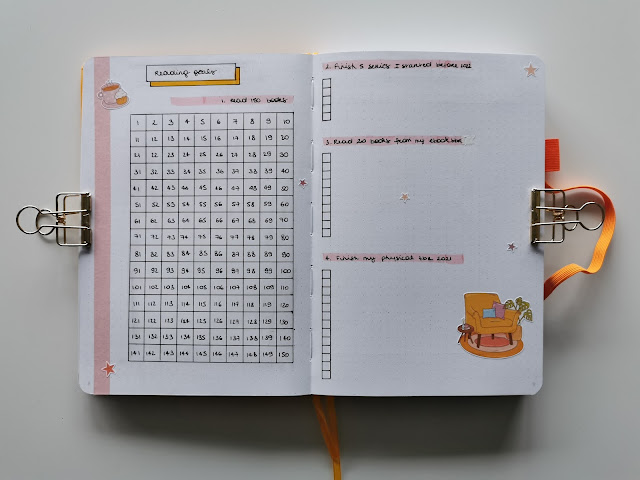 Reading goals
1. Read 150 books
1 2 3 4 5 6 7 8 9 10
11 12 13 14 15 16 17 18 19 20
21 22 23 24 25 26 27 28 29 30
31 32 33 34 35 36 37 38 39 40
41 42 43 44 45 46 47 48 49 50
51 52 53 54 55 56 57 58 59 60
61 62 63 64 65 66 67 68 69 70
71 72 73 74 75 76 77 78 79 80
81 82 83 84 85 86 87 88 89 90
91 92 93 94 95 96 97 98 99 100
101 102 103 104 105 106 107 108 109 110
111 112 113 114 115 116 117 118 119 120
121 122 123 124 125 126 127 128 129 130
131 132 133 134 135 136 137 138 139 140
141 142 143 144 145 146 147 148 149 150
2. Finish 5 series I started before 2021
3. Read 20 books from my ebook tbr
4. Finish my physical tbr 2021